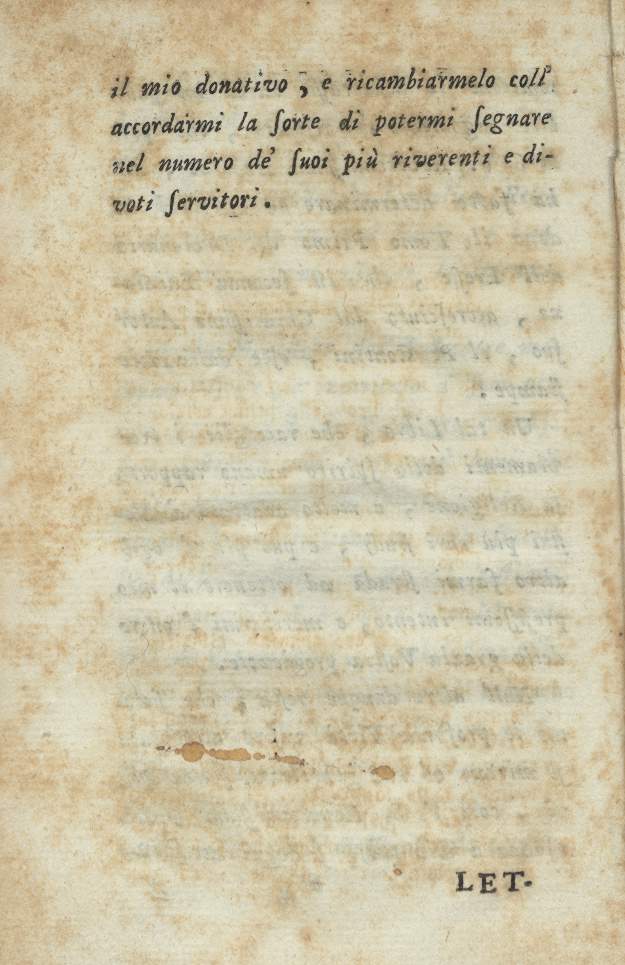 il mio donativo, e ricambiarmelo coll'
accordarmi la ſorte di potermi ſegnare
nel numero de' ſuoi più riverenti e di-
voti ſervitori.
LET-